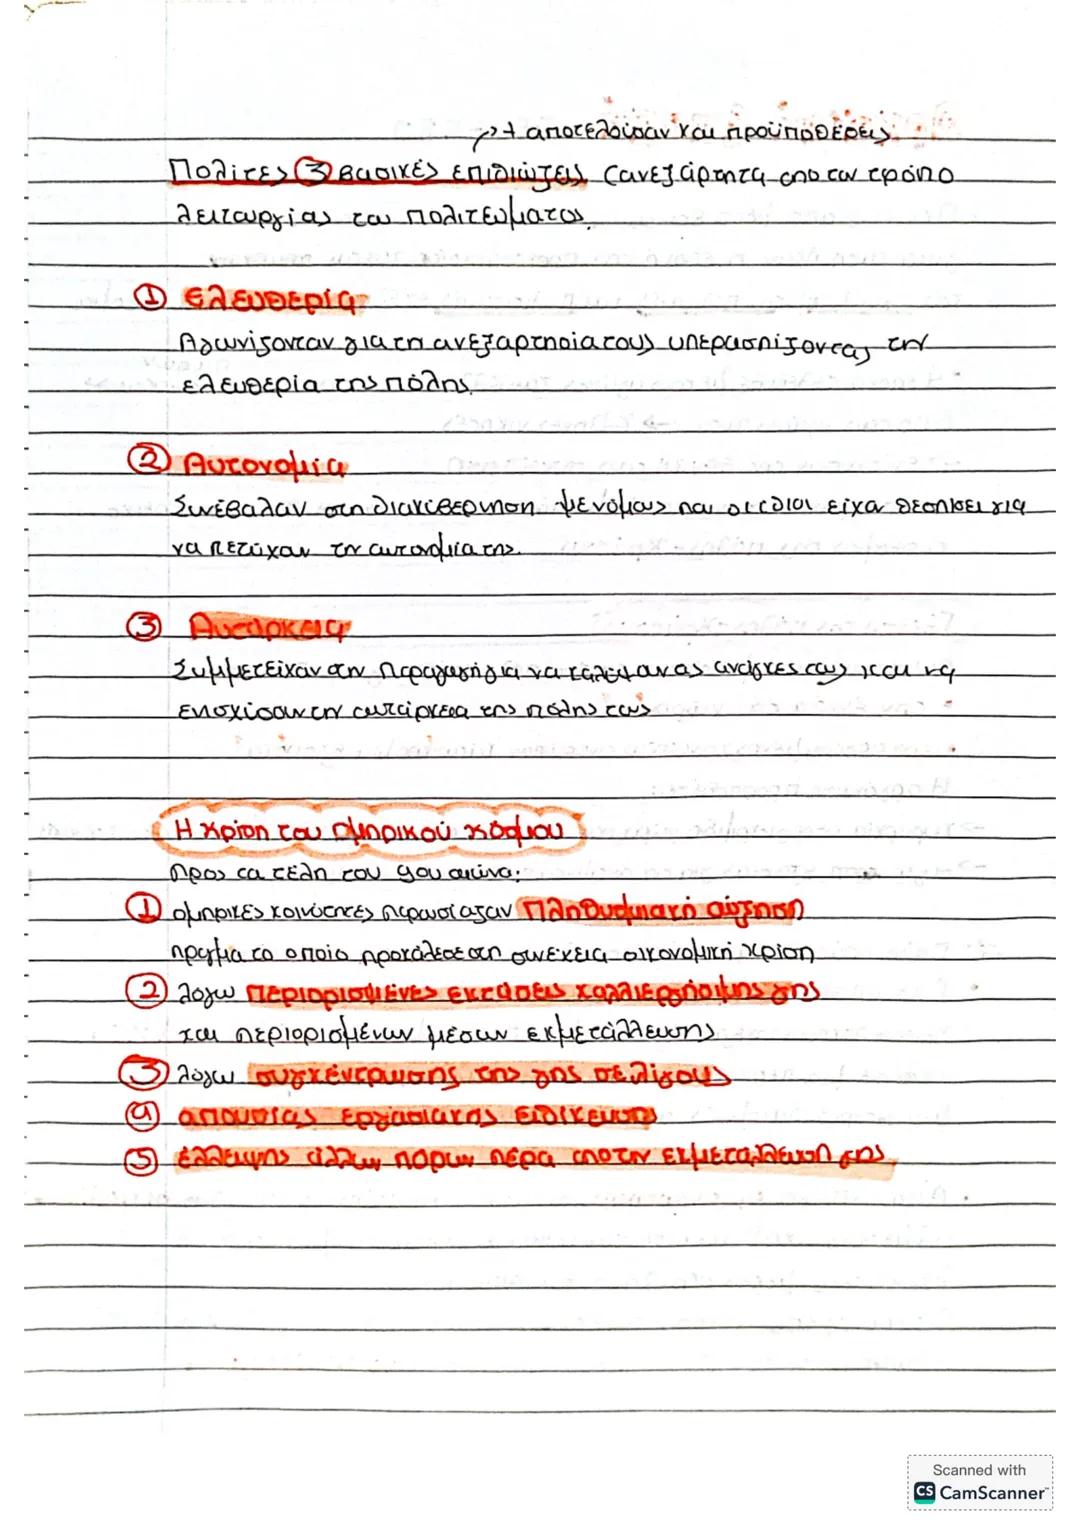 → + αποτελούσαν και προϋποθέσεις
Πολίτες ③ βασικές επιδιώξεις (ανεξάρτητα απο τον τρόπο
λειτουργίας του πολιτεύματος.
① Ελευθερία
Αγωνίζονταν για τη ανεξαρτησία τους υπερασπίζοντας την
ελευθερία της πόλης.
② Αυτονομία
Συνέβαλαν στη διακυβέρνηση με νόμους που οι ίδιοι είχα θεσπίσει για
να πετύχαν την αυτονομία της.
③ Αυτάρκεια
Συμμετείχαν στην παραγωγή για να καλύψαν τις ανάγκες τους και να
ενισχύσουν την αυτάρκεια της πόλης τους
Η κρίση του ομηρικού κόσμου
Προς τα τέλη του 9ου αιώνα:
① ομηρικές κοινότητες παρουσίαζαν πληθυσμιακή αύξηση
πράγμα το οποίο προκάλεσε στη συνέχεια οικονομική κρίση
② λόγω περιορισμένες εκτάσεις καλλιεργήσιμης γης
και περιορισμένων μέσων εκμετάλλευσης
③ λόγω συγκέντρωσης της γης σε λίγους
④ απουσίας εργασιακής ειδίκευσης
⑤ έλλειψης άλλων πόρων πέρα από την εκμετάλλευση γης.
Scanned with
CS CamScanner